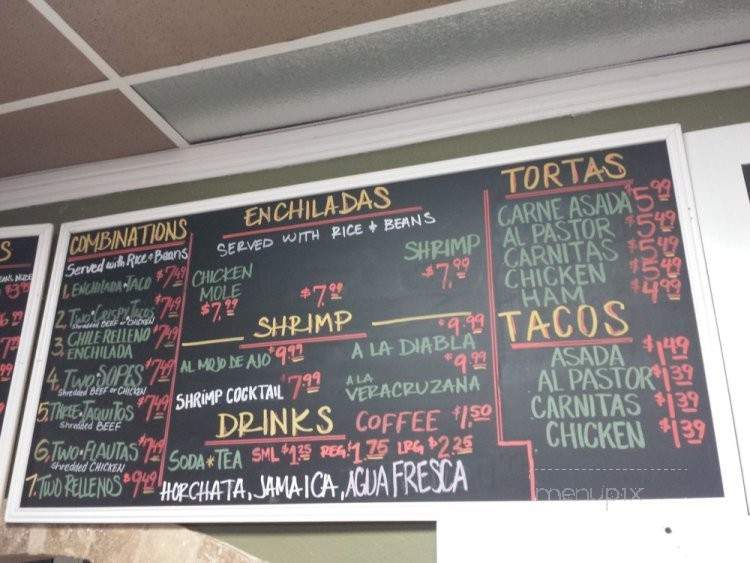 COMBINATIONS
Served with Rice & Beans
1. ENCHILADA & TACO $7.49
2. TWO CRISPY TACOS $7.49
Shredded BEEF or CHICKEN
3. CHILE RELLENO & ENCHILADA $7.49
4. TWO SOPES $7.49
Shredded BEEF or CHICKEN
5. THREE TAQUITOS $7.49
Shredded BEEF
6. TWO FLAUTAS $7.49
Shredded CHICKEN
7. TWO RELLENOS $9.49
ENCHILADAS
SERVED WITH RICE & BEANS
CHICKEN MOLE $7.99
$7.99
SHRIMP $7.99
SHRIMP
AL MOJO DE AJO $9.99
A LA DIABLA $9.99
SHRIMP COCKTAIL $7.99
A LA VERACRUZANA $9.99
DRINKS
COFFEE $1.50
SODA * TEA SML $1.35 REG. $1.75 LRG $2.25
HORCHATA, JAMAICA, AGUA FRESCA
TORTAS
CARNE ASADA $5.99
AL PASTOR $5.49
CARNITAS $5.49
CHICKEN $5.49
HAM $4.99
TACOS
ASADA $1.49
AL PASTOR $1.39
CARNITAS $1.39
CHICKEN $1.39
menupix